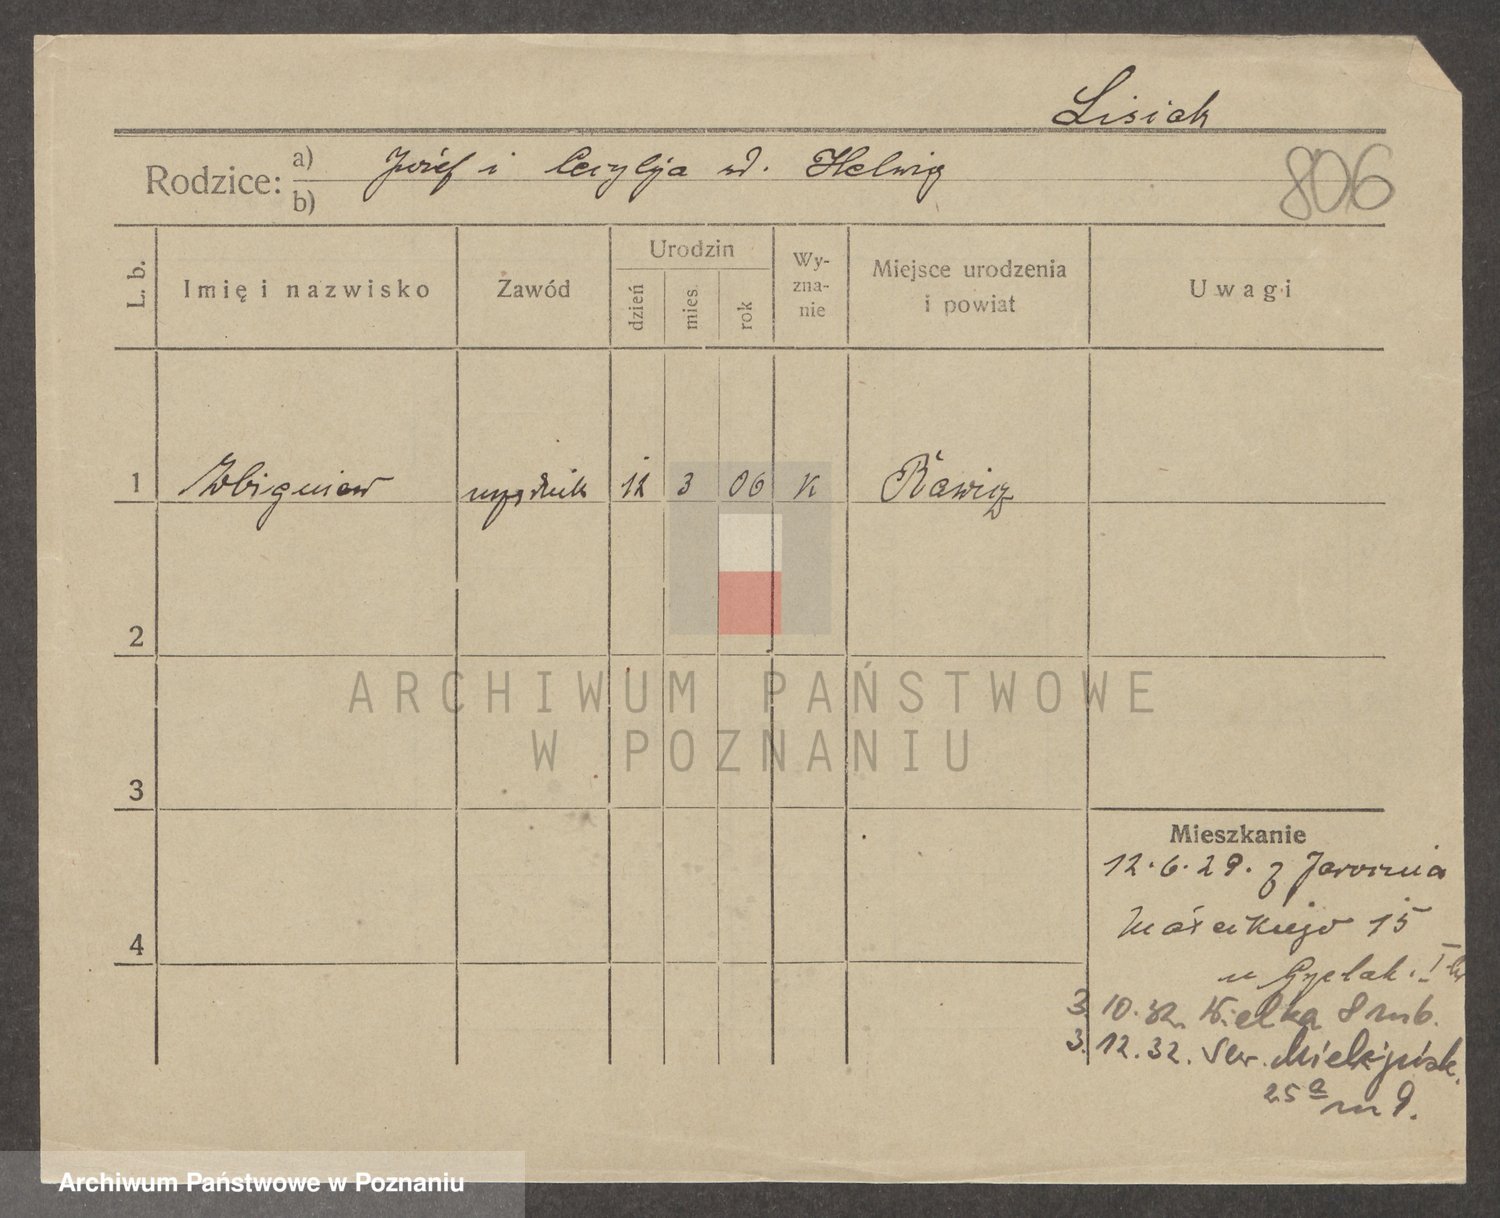 Lisiak
Rodzice: a) Józef i Cecylja ud. Helwig
b)
806
L. b.
Imię i nazwisko
Zawód
Urodzin
dzień
mies.
rok
Wy-
zna-
nie
Miejsce urodzenia
i powiat
Uwagi
1 Zbigniew urzędnik 12 3 06 K Rawicz
2
ARCHIWUM PAŃSTWOWE
W POZNANIU
3
Mieszkanie
12.6.29. z Jarocina
15
4
u
3.10.32. Wielka 8 m 6.
3.12.32. Sew. Mielżyńsk.
25a m 9.
Archiwum Państwowe w Poznaniu